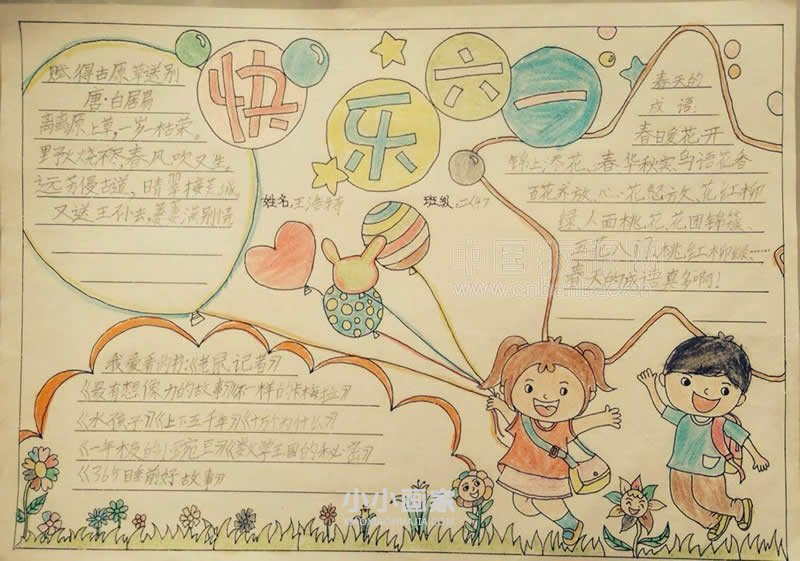 快乐六一
赋得古原草送别
唐·白居易
离离原上草,一岁一枯荣。
野火烧不尽春风吹又生。
远芳侵古道、晴翠接荒城
又送王孙去,萋萋满别情
姓名:王浩
班级:二
春天的
成语:
春日爱花、开
锦上添花、春华秋实鸟语花香
百花齐放、心花怒放、花红柳
绿、人面桃花、花团锦簇、
五花八门桃红柳绿……
春天的成语真多啊!
我爱看的书:《老鼠记者》
《最有想像力的故事》《不一样的卡梅拉》
《水孩子》《上下五千年》《十万个为什么》
《一年级的小豌豆》《数学王国的秘密》
《365睡前好故事》
小小画家
XIAOXIAOHUAJIA.COM